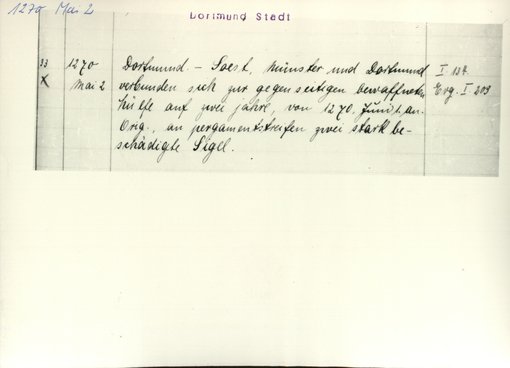 1270 Mai 2
Dortmund Stadt
33 1270 Dortmund. – Soest, Münster und Dortmund I 134.
X Mai 2 verbünden sich zur gegenseitigen bewaffneten Erg. I 203
Hülfe auf zwei Jahre, von 1270, Juni 1. an.
Orig., an pergamentstreifen zwei stark be-
schädigte Sigel.